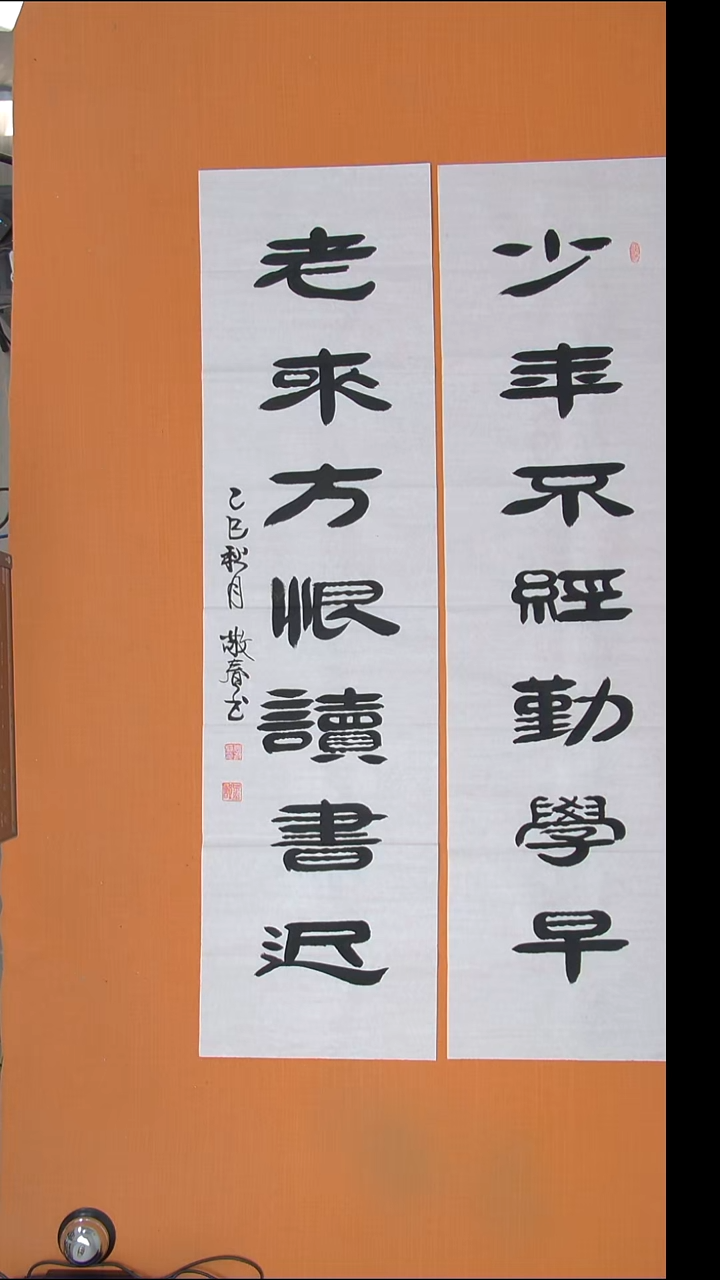 少年不經勤學早
老來方恨讀書迟
乙巳秋月 敬春书